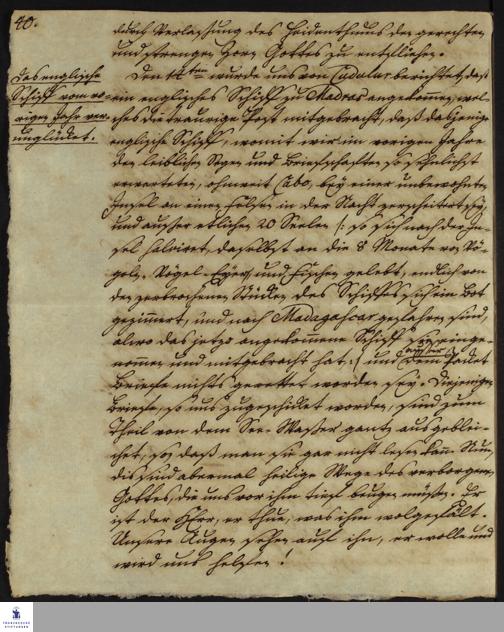 40.
durch Verlassung des Heidenthums dem gerechten
und strengen Zorn Gottes zu entfliehen.
Des englische
Schiff vom vo-
rigen Jahr ver-
unglückt.
Den 14ten wurde uns von Cudalur berichtet, daß
ein englisches Schiff zu Madras angekommen, wel-
ches die traurige Post mitgebracht, daß dasjenige
englische Schiff, womit wir im vorigen Jahre
den leiblichen Segen und Briefschafften so sehnlichst
erwarteten, ohnweit Cabo, bey einer unbewohnten
Insel an einen Felsen in der Nacht zerscheitert sey,
und ausser etlichen 20 Seelen /: so sich nach der In-
sel salviret, daselbst an die 8 Monate von Vö-
geln, Vögel-Eyer und Fischen gelebt, endlich von
den zerbrochenen Stücken des Schiffes sich ein Bot
gezimmert, und nach Madagascar gefahren sind,
alwo das jetzo angekommene Schiff sie einge-
nommen und mitgebracht hat :/ und ausser dem Packet
Briefe nichts gerettet worden sey. Diejenigen
Briefe, so uns zugeschicket worden, sind zum
Theil von dem See-Wasser gantz ausgeblei-
chet, so daß man sie gar nicht lesen kan. Nun,
dis sind abermal heilige Wege des verborgenen
Gottes, die uns vor ihm tief beugen müssen. Er
ist der HErr, er thue, was ihm wolgefällt.
Unsere Augen sehen auf ihn, er wolle und
wird uns helfen!
FRANCKESCHE
STIFTUNGEN